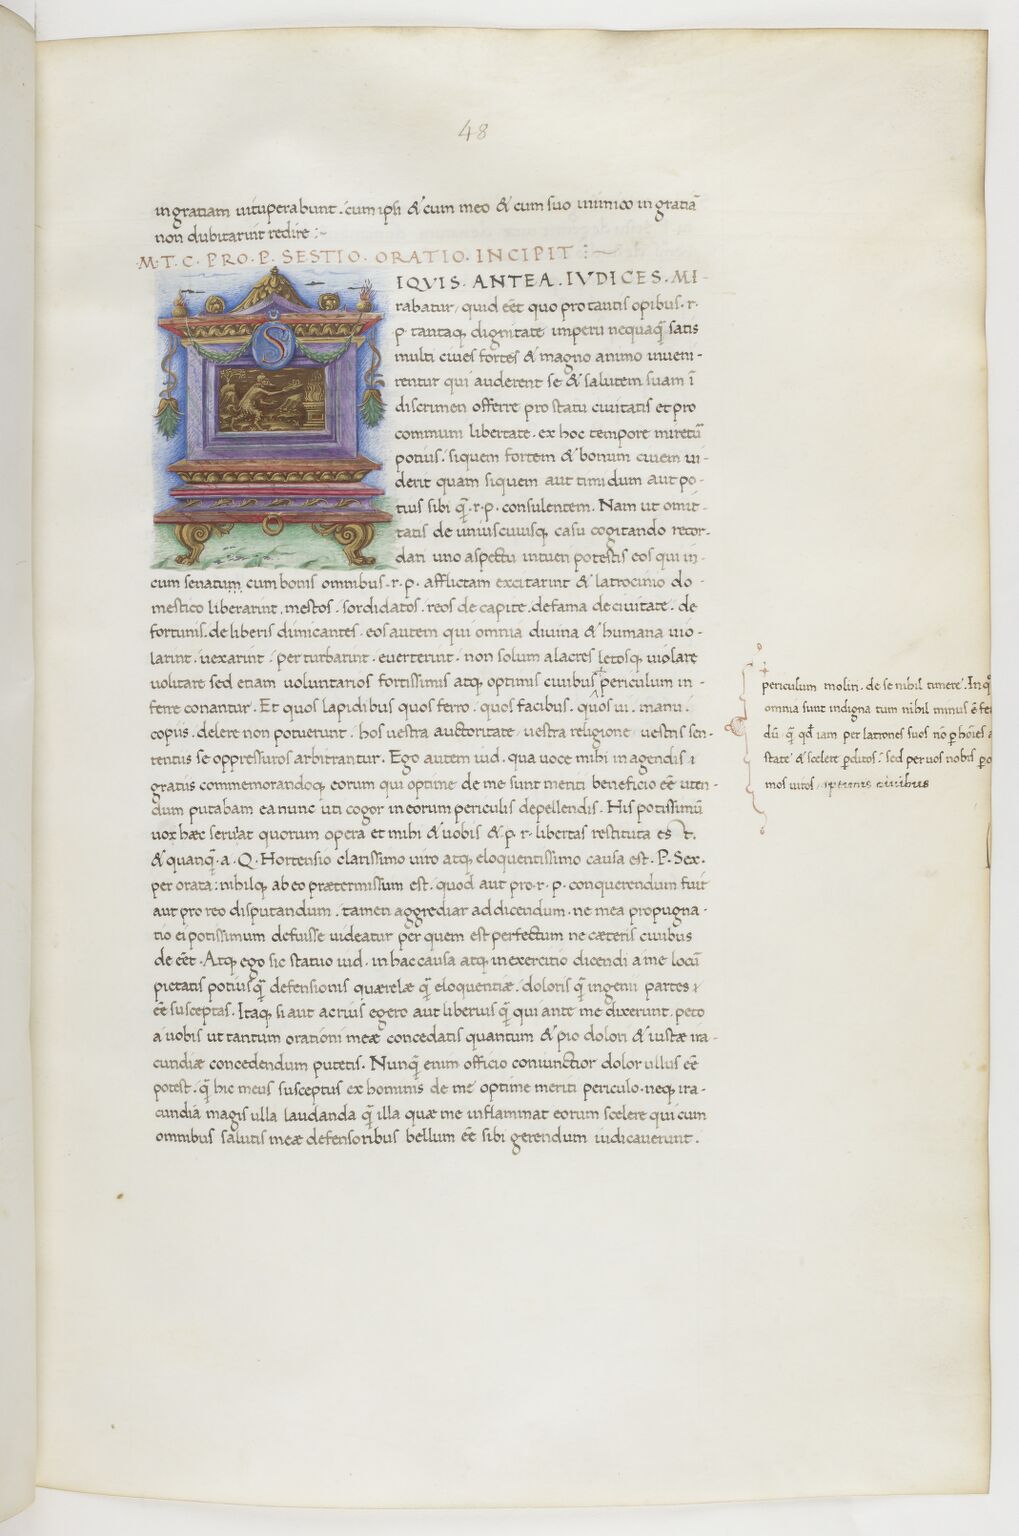 48
ingratiam uituperabunt. cum ipsi & cum meo & cum suo inimico in gratiā
non dubitarint redire :~
M. T. C. PRO. P. SESTIO. ORATIO. INCIPIT :~
S
IQVIS. ANTEA. IVDICES. MI-
rabatur, quid eēt quo pro tantis opibus. r.
p. tantaq; dignitate imperii nequaq̄ satis
multi ciues fortes & magno animo inueni-
rentur qui auderent se & salutem suam ī
discrimen offerre pro statu ciuitatis et pro
communi libertate. ex hoc tempore miretū
potius. siquem fortem & bonum ciuem ui-
derit quam siquem aut timidum aut po-
tius sibi q̄. r. p. consulentem. Nam ut omit-
tatis de uniuscuiusq; casu cogitando recor-
dari uno aspectu intueri potestis eos qui in-
cum senatum cum bonis omnibus. r. p. afflictam excitarint & latrocinio do-
mestico liberarint. mestos. sordidatos. reos de capite. de fama de ciuitate. de
fortunis. de liberis dimicantes. eos autem qui omnia diuina & humana uio-
larint. uexarint. perturbarint. euerterint. non solum alacres letosq; uiolare
uolitare sed etiam uoluntarios fortissimis atq; optimis ciuibus periculum in-
ferre conantur. Et quos lapidibus quos ferro. quos facibus. quos ui. manu.
copiis. delere non potuerunt. hos uestra auctoritate uestra religione uestris sen-
tentiis se oppressuros arbitrantur. Ego autem iud. qua uoce mihi in agendis
gratiis commemorandoq; eorum qui optime de me sunt meriti beneficio eē uten-
dum putabam ea nunc uti cogor in eorum periculis depellendis. His potissimū
uox hæc seruiat quorum opera et mihi & uobis & p. r. libertas restituta est.
& quanq̄. a. Q. Hortensio clarissimo uiro atq; eloquentissimo causa est. P. Sex.
per orata: nihilq; ab eo prætermissum est. quod aut pro. r. p. conquerendum fuit
aut pro reo disputandum. tamen aggrediar ad dicendum. ne mea propugna-
tio ei potissimum defuisse uideatur per quem est perfectum ne cæteris ciuibus
de eēt. Atq; ego sic statuo iud. in hac causa atq; in exercitio dicendi a me locū
pietatis potius q̄ defensionis quærelæ q̄ eloquentiæ. doloris q̄ ingenii partes
eē susceptas. Itaq; si aut acrius egero aut liberius q̄ qui ante me dixerunt. peto
a uobis ut tantum orationi meæ concedatis quantum & pio dolori & iustæ ira-
cundiæ concedendum putetis. Nunq̄ enim officio coniunctior dolor ullius eē
potest. q̄ hic meus susceptus ex hominis de me optime meriti periculo. neq; ira-
cundia magis ulla laudanda q̄ illa quæ me inflammat eorum scelere qui cum
omnibus salutis meæ defensoribus bellum eē sibi gerendum iudicauerunt.
periculum moliri. de se nihil timere. In q
omnia sunt indigna tum nihil minus ē fe
dū. q̄ qđ iam per latrones suos nō p hoīes
state & scelere pditos. sed per uos nobis p
mos uiros optimis ciuibus